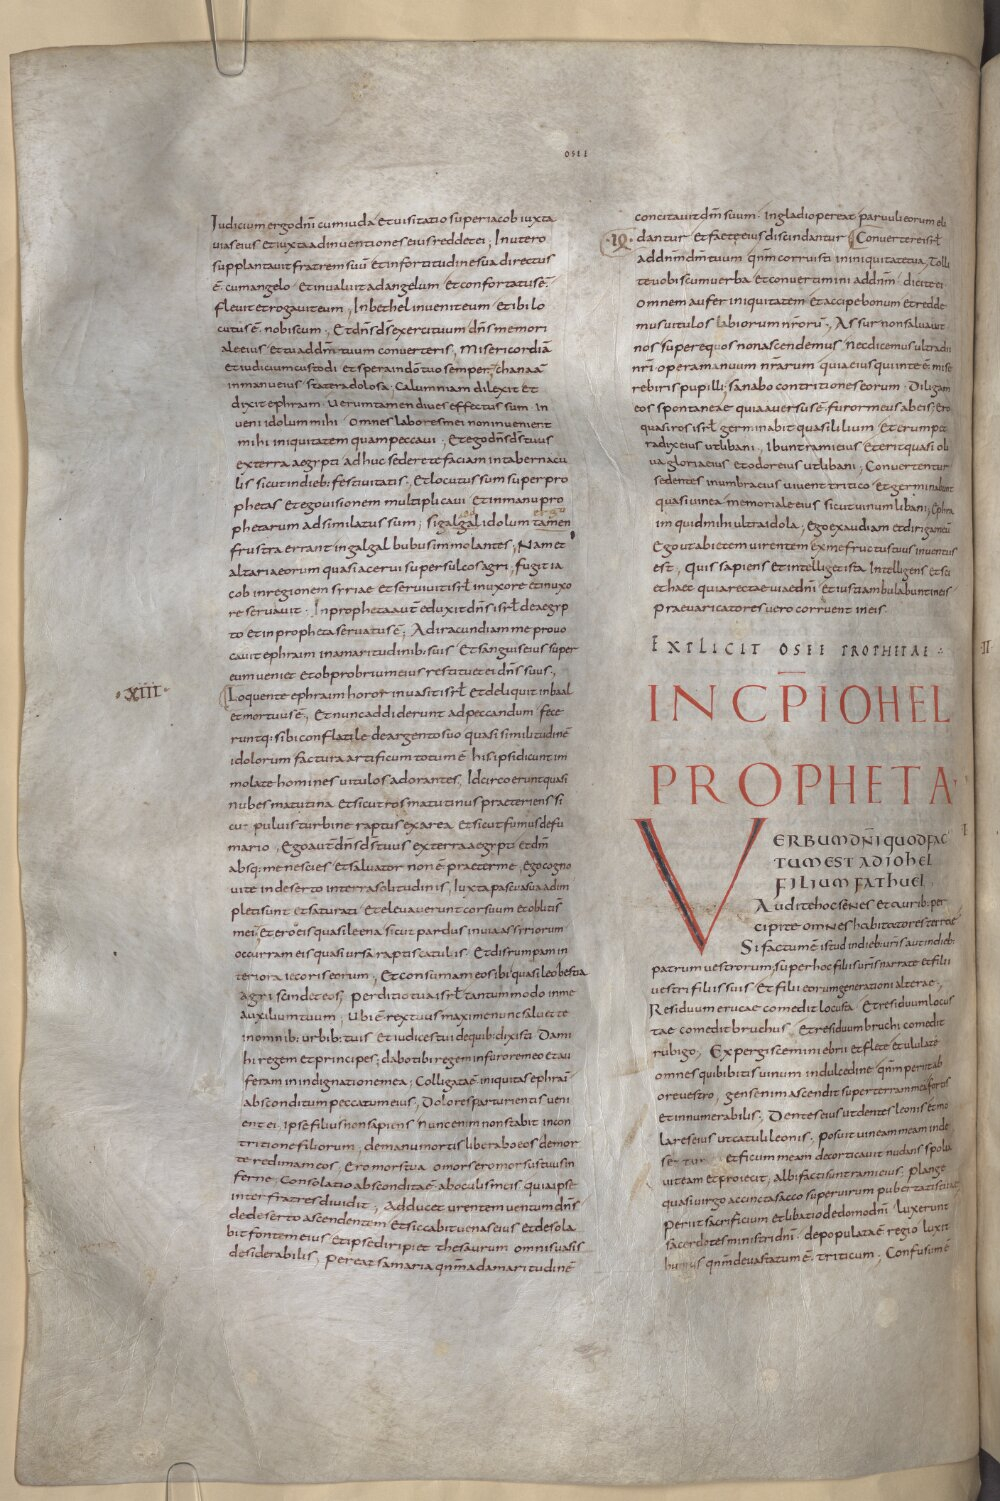 OSEE
Iudicium ergo dñi cum iuda et uisitatio super iacob iuxta
uias eius et iuxta adinuentiones eius reddet ei; In utero
supplantauit fratrem suū et in fortitudine sua directus
ē cum angelo et inualuit ad angelum et confortatus ē.
fleuit et rogauit eum; In bethel inuenit eum et ibi lo
cutus ē nobiscum; Et dñs dš exercituum dñs memori
ale eius et tu ad dñm tuum converteris; Misericordiā
et iudicium custodi et spera in dō tuo semper; chanaā
in manu eius statera dolosa; Calumniam dilexit et
dixit ephraim uerumtamen diues effectus sum in
ueni idolum mihi Omnes labores mei non invenient
mihi iniquitatem quam peccaui; Et ego dñs dš tuus
ex terra aegypti adhuc sedere te faciam in tabernacu
lis sicut in dieb: festiuitatis; Et locutus sum super pro
phetas et ego uisionem multiplicaui et in manu pro
phetarum adsimilatus sum; si galgal idolum tamen
frustra errant in galgal bubus immolantes; Nam et
altaria eorum quasi acerui super sulcos agri; fugit ia
cob in regionem syriae et seruiuit isrł in uxore et in uxo
re seruauit. In propheta autē eduxit dñs isrł de aegyp
to et in propheta seruatus ē; Ad iracundiam me provo
cauit ephraim in amaritudinib: suis Et sanguis eius super
eum ueniet et obprobrium eius restituet ei dñs suus;
·XIII· Loquente ephraim horror inuasit isrł et deliquit in baal
et mortuus ē; Et nunc addiderunt ad peccandum fece
runtq: sibi conflatile de argento suo quasi similitudinē
idolorum factura artificum totum ē his ipsi dicunt im
molate homines uitulos adorantes; Idcirco erunt quasi
nubes matutina et sicut ros matutinus praeteriens si
cut puluis turbine raptus ex area et sicut fumus de fu
mario; Ego autē dñs dš tuus ex terra aegypti et dm̄
absq: me nescies et saluator non ē praeter me; ego cogno
ui te in deserto in terra solitudinis; Iuxta pascua sua adim
pleti sunt et saturati et eleuauerunt cor suum et obliti s̄
mei; et ero eis quasi leena sicut pardus in uia assyriorum
occurram eis quasi ursa raptis catulis Et disrumpam in
teriora iecoris eorum; Et consumam eos ibi quasi leo bestia
agri scindet eos; perditio tua isrł tantummodo in me
auxilium tuum; Ubi ē rex tuus maxime nunc saluet te
in omnib: urbib: tuis Et iudices tui de quib: dixisti Da mi
hi regem et principes; dabo tibi regem in furore meo et au
feram in indignatione mea; Colligata ē iniquitas ephraī
absconditum peccatum eius; Dolores parturientis ueni
ent ei. ipse filius non sapiens Nunc enim non stabit in con
tritione filiorum; de manu mortis liberabo eos de mor
te redimam eos; Ero mors tua o mors ero morsus tuus in
ferne; Consolatio abscondita ē ab oculis meis quia ipse
inter fratres diuidit; Adducet urentem uentum dñs
de deserto ascendentem et siccabit uenas eius et desola
bit fontem eius et ipse diripiet thesaurum omnis uasis
desiderabilis; Pereat samaria qnm̄ ad amaritudinē
concitauit dm̄ suum. In gladio pereat paruuli eorum eli
dantur et faetae eius discindantur Convertere isrł
ad dnm̄ dm̄ tuum qnm̄ corruisti in iniquitate tua. Tolli
te uobiscum uerba et conuertimini ad dnm̄; dicite ei
Omnem aufer iniquitatem et accipe bonum et redde
mus uitulos labiorum nr̄orū; Assur non saluauit
nos super equos non ascendemus nec dicemus ultra dii
nr̄i opera manuum nr̄arum quia eius qui in te ē mise
reberis pupilli; sanabo contritiones eorum. Diligam
eos spontaneae quia auersus ē furor meus ab eis; Ero
quasi ros isrł germinabit quasi lilium Et erumpet
radix eius ut libani; Ibunt rami eius Et erit quasi oli
ua gloria eius et odor eius ut libani; Conuertentur
sedentes in umbra eius uiuent tritico et germinabunt
quasi uinea memoriale eius sicut uinum libani; Ephra
im quid mihi ultra idola; Ego exaudiam et dirigam eū
Ego ut abietem uirentem ex me fructus tuus inuentus
est; Quis sapiens et intelleget ista Intellegens et sci
et haec quia rectae uiae dñi et iusti ambulabunt in eis
praeuaricatores uero corruent in eis.
EXPLICIT OSEE PROPHETAE
INCP̄ IOHEL
PROPHETA
VERBUM DÑI QUOD FAC
TUM EST AD IOHEL
FILIUM FATHUEL
Audite hoc senes et aurib: per
cipite omnes habitatores terrae
Si factum ē istud in dieb: uris aut in dieb:
patrum uestrorum; super hoc filiis uris narrate et filii
uestri filiis suis Et filii eorum generationi alterae;
Residuum erucae comedit locusta Et residuum locus
tae comedit bruchus Et residuum bruchi comedit
rubigo; Expergiscemini ebrii et flete et ululate
omnes qui bibitis uinum in dulcedine qnm̄ periit ab
ore uestro; gens enim ascendit super terram meam fortis
et innumerabilis; Dentes eius ut dentes leonis et mo
lares eius ut catuli leonis; posuit uineam meam in de
sertum et ficum meam decorticauit nudans spolia
uit eam et proiecit; albi facti sunt rami eius; plange
quasi uirgo accincta sacco super uirum pubertatis suae
periit sacrificium et libatio de domo dñi luxerunt
sacerdotes ministri dñi; depopulata ē regio luxit
humus qnm̄ deuastatum ē triticum; Confusum ē